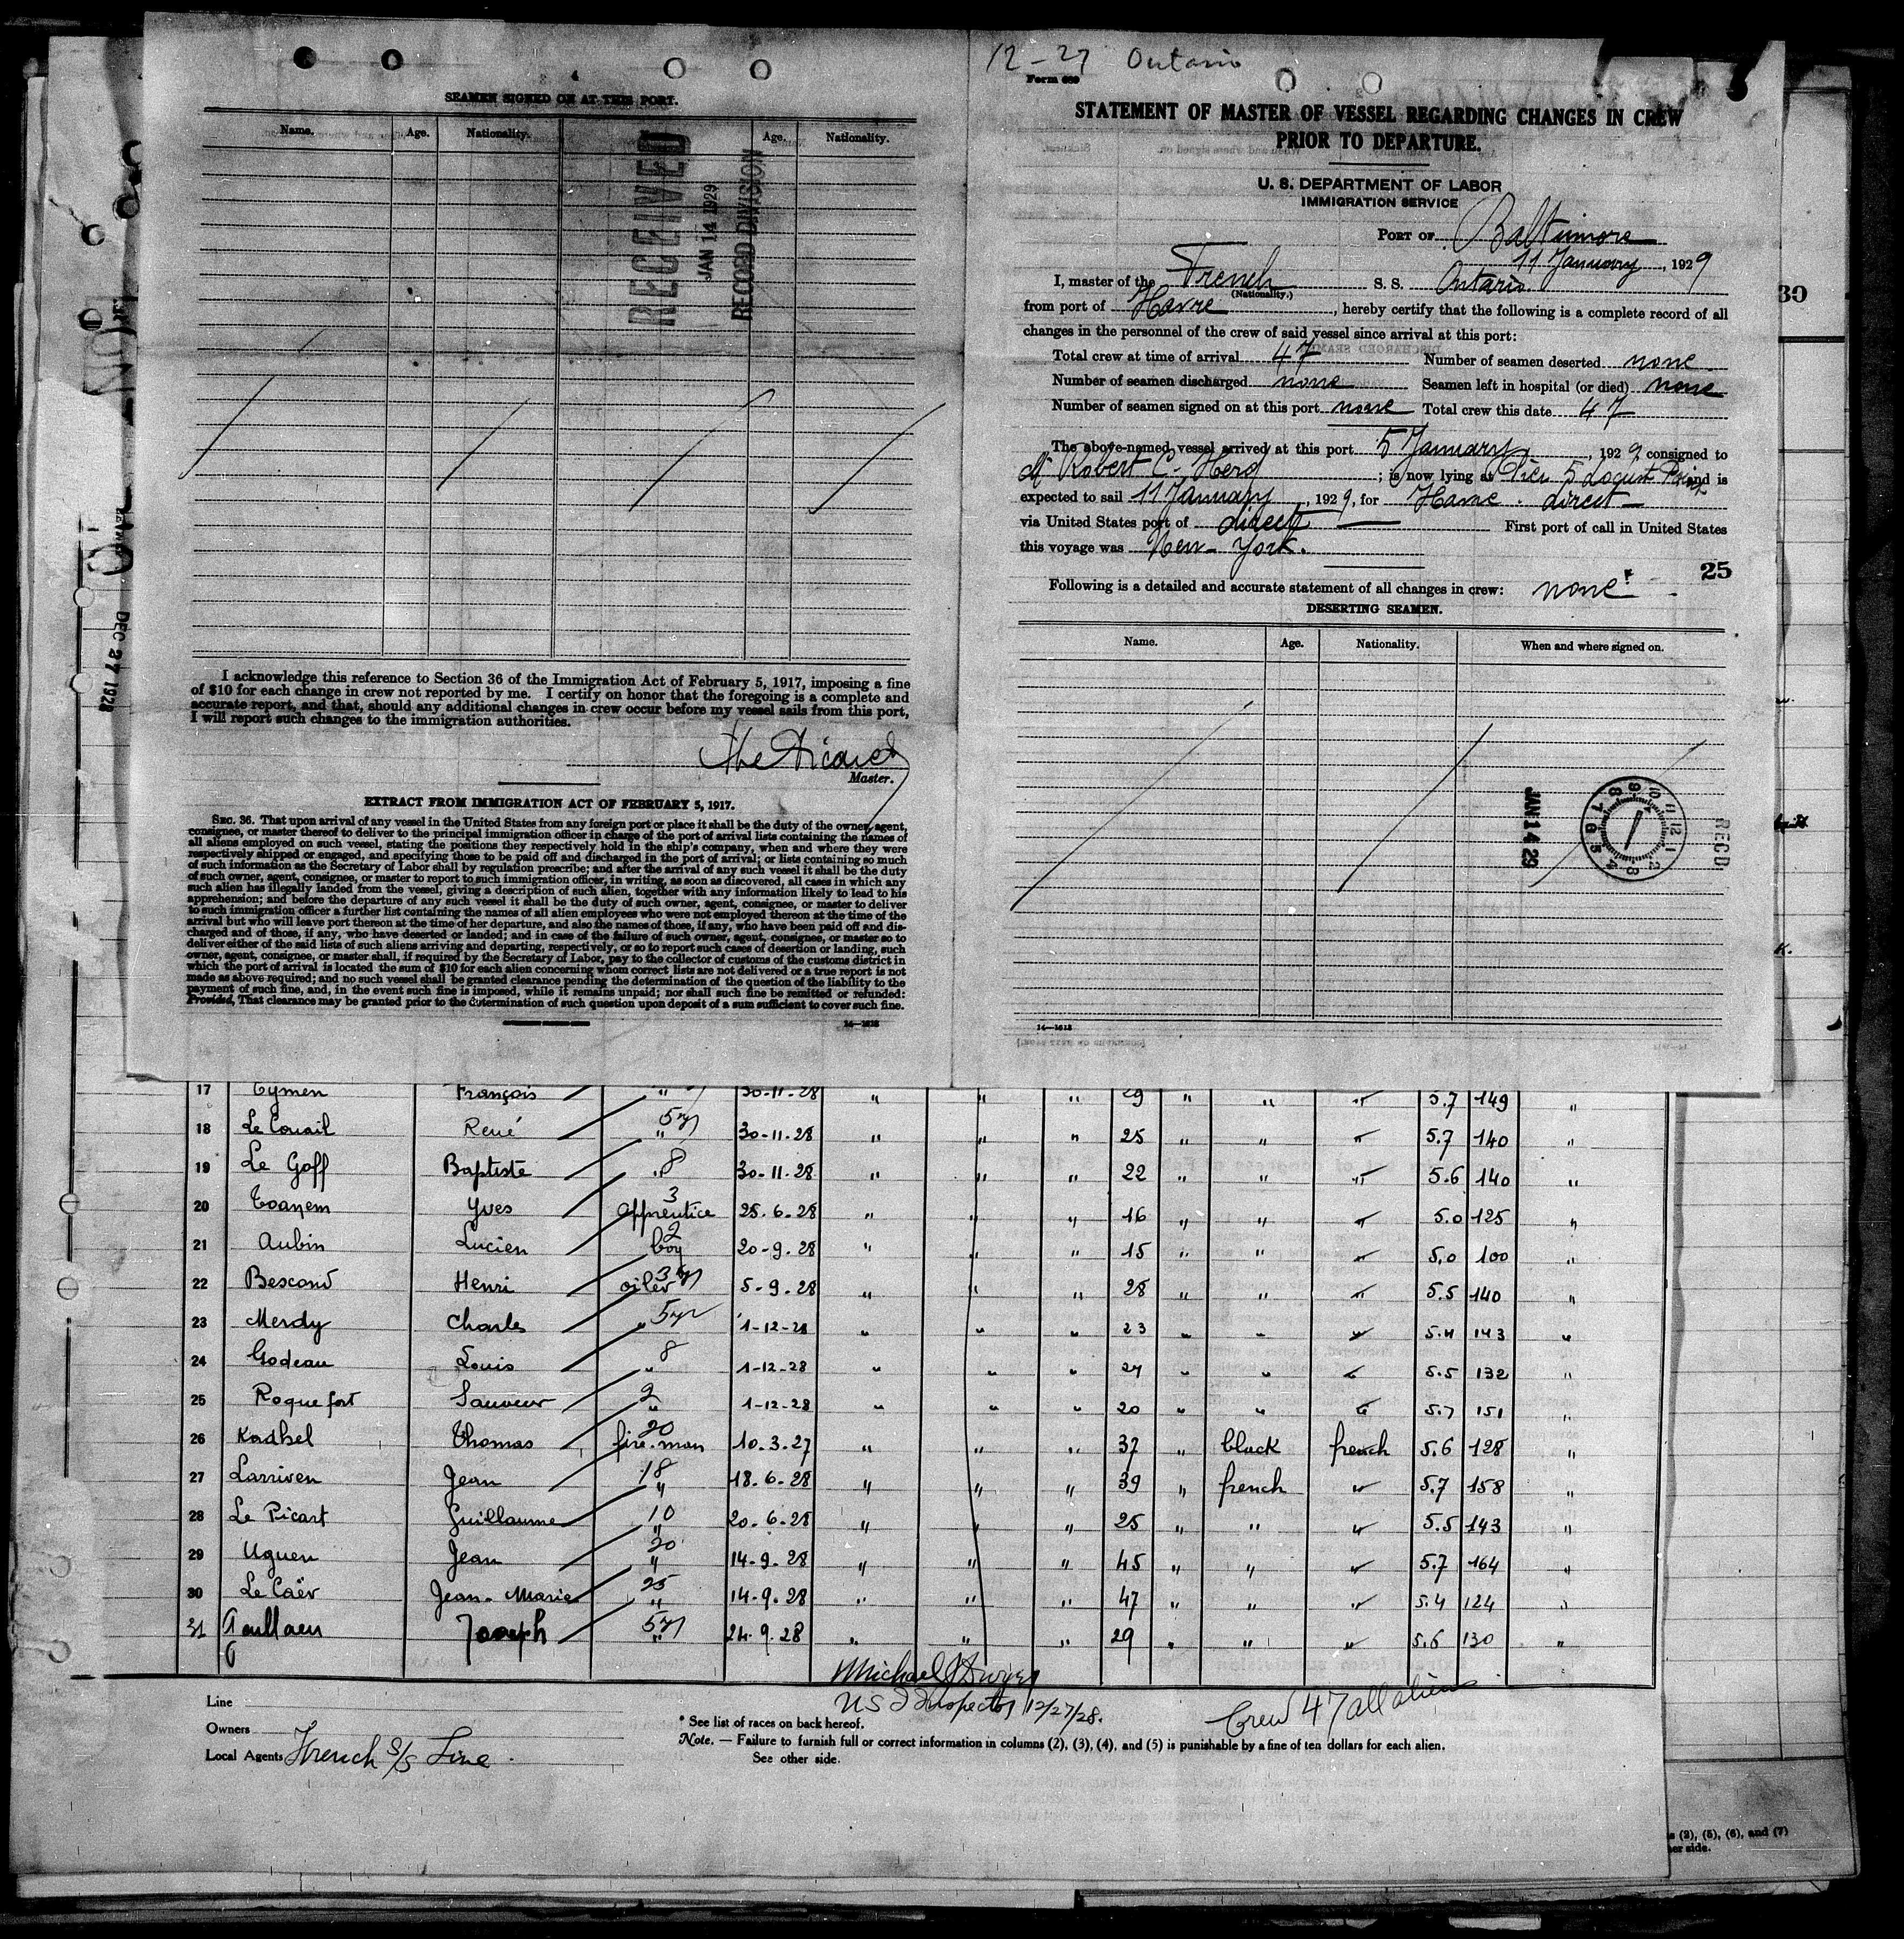 SEAMEN SIGNED ON AT THIS PORT.
Name. Age. Nationality. Age. Nationality.
RECEIVED
JAN 14 1929
RECORD DIVISION
I acknowledge this reference to Section 36 of the Immigration Act of February 5, 1917, imposing a fine
of $10 for each change in crew not reported by me. I certify on honor that the foregoing is a complete and
accurate report, and that, should any additional changes in crew occur before my vessel sails from this port,
I will report such changes to the immigration authorities.
Master.
EXTRACT FROM IMMIGRATION ACT OF FEBRUARY 5, 1917.
SEC. 36. That upon arrival of any vessel in the United States from any foreign port or place it shall be the duty of the owner, agent,
consignee, or master thereof to deliver to the principal immigration officer in charge of the port of arrival lists containing the names of
all aliens employed on such vessel, stating the positions they respectively hold in the ship's company, when and where they were
respectively shipped or engaged, and specifying those to be paid off and discharged in the port of arrival; or lists containing so much
of such information as the Secretary of Labor shall by regulation prescribe; and after the arrival of any such vessel it shall be the duty
of such owner, agent, consignee, or master to report to such immigration officer, in writing, as soon as discovered, all cases in which any
such alien has illegally landed from the vessel, giving a description of such alien, together with any information likely to lead to his
apprehension; and before the departure of any such vessel it shall be the duty of such owner, agent, consignee, or master to deliver
to such immigration officer a further list containing the names of all alien employees who were not employed thereon at the time of the
arrival but who will leave port thereon at the time of her departure, and also the names of those, if any, who have been paid off and dis-
charged and of those, if any, who have deserted or landed; and in case of the failure of such owner, agent, consignee, or master so to
deliver either of the said lists of such aliens arriving and departing, respectively, or so to report such cases of desertion or landing, such
owner, agent, consignee, or master shall, if required by the Secretary of Labor, pay to the collector of customs of the customs district in
which the port of arrival is located the sum of $10 for each alien concerning whom correct lists are not delivered or a true report is not
made as above required; and no such vessel shall be granted clearance pending the determination of the question of the liability to the
payment of such fine, and, in the event such fine is imposed, while it remains unpaid; nor shall such fine be remitted or refunded:
Provided, That clearance may be granted prior to the determination of such question upon deposit of a sum sufficient to cover such fine.
14—1618
12-27 Ontario
Form 689
STATEMENT OF MASTER OF VESSEL REGARDING CHANGES IN CREW
PRIOR TO DEPARTURE.
U. S. DEPARTMENT OF LABOR
IMMIGRATION SERVICE
PORT OF Baltimore
11 January, 1929
I, master of the French S. S. Ontario
(Nationality.)
from port of Havre, hereby certify that the following is a complete record of all
changes in the personnel of the crew of said vessel since arrival at this port:
Total crew at time of arrival 47 Number of seamen deserted none
Number of seamen discharged none Seamen left in hospital (or died) none
Number of seamen signed on at this port none Total crew this date 47
The above-named vessel arrived at this port 5 January, 1929, consigned to
Mr Robert C. Herd; is now lying at Pier 5 Locust Point and is
expected to sail 11 January, 1929, for Havre. direct
via United States port of direct First port of call in United States
this voyage was New-York.
25
Following is a detailed and accurate statement of all changes in crew: none
DESERTING SEAMEN.
Name. Age. Nationality. When and where signed on.
JAN 14 29
REC'D
14—1618
30
DEC 27 1928
17 Eymen François " 30-11-28 " " " 29 " " " 5.7 149 "
18 Le Couail René 5 y " 30-11-28 " " " 25 " " " 5.7 140 "
19 Le Goff Baptiste 8 " 30-11-28 " " " 22 " " " 5.6 140 "
20 Toanem Yves 3 apprentice 25.6.28 " " " 16 " " " 5.0 125 "
21 Aubin Lucien 2 boy 20-9.28 " " " 15 " " " 5.0 100 "
22 Bescond Henri 3 y oiler 5-9.28 " " " 28 " " " 5.5 140 "
23 Merdy Charles 5 yr " 1-12-28 " " " 23 " " " 5.4 143 "
24 Godeau Louis 8 " 1-12-28 " " " 27 " " " 5.5 132 "
25 Roquefort Sauveur 2 " 1-12-28 " " " 20 " " " 5.7 151 "
26 Kadhel Thomas 20 fire-man 10.3.27 " " " 37 " black french 5.6 128 "
27 Larriven Jean 18 " 18.6.28 " " " 39 " french " 5.7 158 "
28 Le Picart Guillaume 10 " 20-6.28 " " " 25 " " " 5.5 143 "
29 Uguen Jean 20 " 14-9.28 " " " 45 " " " 5.7 164 "
30 Le Caër Jean-Marie 25 " 14-9.28 " " " 47 " " " 5.4 124 "
31 Joseph 5 y " 24.9.28 " " " 29 " " " 5.6 130 "
Michael J Dwyer
US I Inspector 12/27/28.
Crew 47 all aliens
Line
Owners
Local Agents French S/S Line
* See list of races on back hereof.
Note. — Failure to furnish full or correct information in columns (2), (3), (4), and (5) is punishable by a fine of ten dollars for each alien.
See other side.
(2), (5), (6), and (7)
er side.